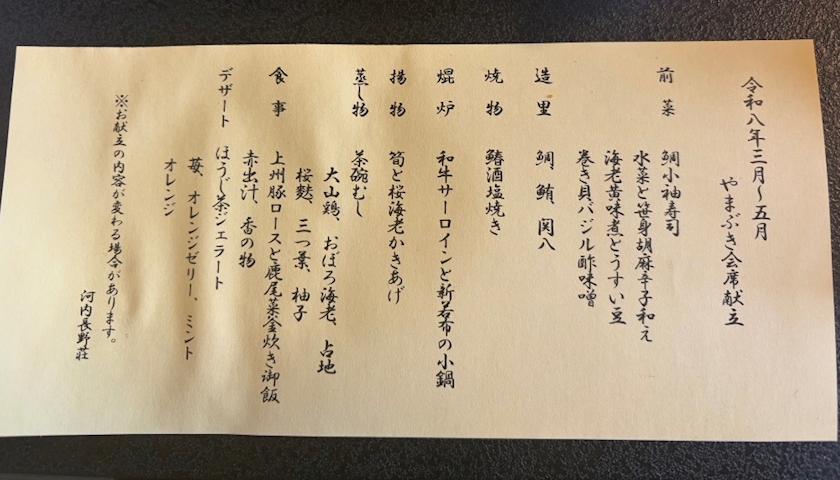 令和八年三月～五月
やまぶき会席献立
前菜 鯛小袖寿司
水菜と笹身胡麻辛子和え
海老黄味煮とうすい豆
巻き貝バジル酢味噌
造里 鯛、鮪、関八
焼物 鰆酒塩焼き
焜炉 和牛サーロインと新若布の小鍋
揚物 筍と桜海老かきあげ
蒸し物 茶碗むし
大山鶏、おぼろ海老、占地
桜麩、三つ葉、柚子
食事 上州豚ロースと鹿尾菜釜炊き御飯
赤出汁、香の物
デザート ほうじ茶ジェラート
苺、オレンジゼリー、ミント
オレンジ
※お献立の内容が変わる場合があります。
河内長野荘